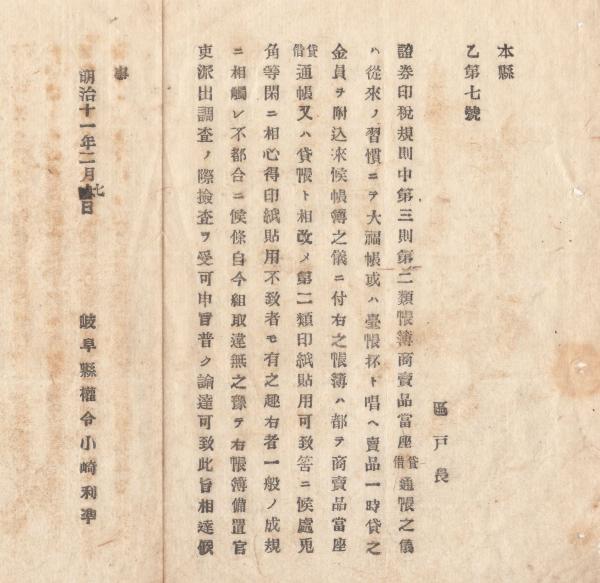 本縣
乙第七號
區戸長
證券印税規則中第三則第二類帳簿商賣品當座貸借通帳之儀
ハ從來ノ習慣ニテ大福帳或ハ臺帳抔ト唱ヘ賣品一時貸之
金員ヲ附込來候帳簿之儀ニ付右之帳簿ハ都テ商賣品當座
貸借通帳又ハ貸帳ト相改メ第二類印紙貼用可致筈ニ候處兎
角等閑ニ相心得印紙貼用不致者モ有之趣右者一般ノ成規
ニ相觸レ不都合ニ候條自今組取違無之豫テ右帳簿備置官
吏派出調査ノ際撿査ヲ受可申旨普ク諭達可致此旨相達候
事
明治十一年二月七日
岐阜縣權令小崎利準